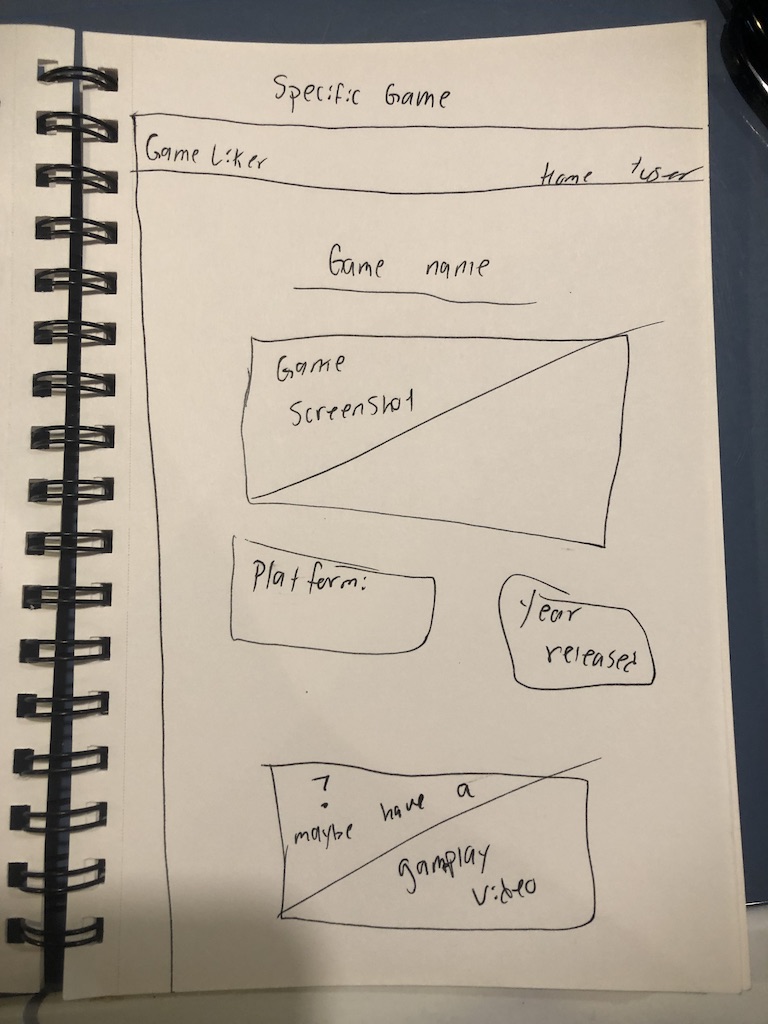 Specific Game
Game Liker
Home
Game name
Game
Screenshot
Platform:
Year
released
?
maybe have a
gamplay
video